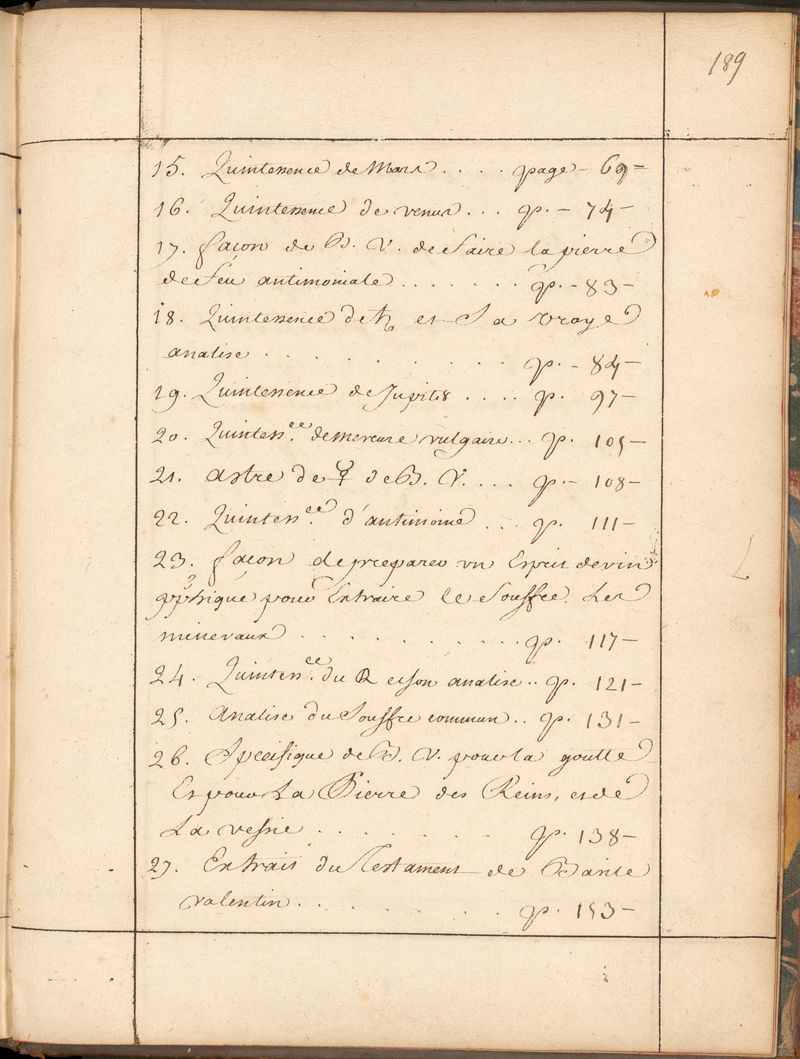 189
15. Quintessence de Mars . . . . page - 69 =
16. Quintessence de venus . . . p. - 74 -
17. façon de B. V. de faire la pierre
de feu antimoniale . . . . . . . p. - 83 -
18. Quintessence de ♄ et Sa vraye
analise . . . . . . . . . . p. - 84 -
19. Quintessence de Jupiter . . . . p. 97 -
20. Quintess.ce de mercure vulgaire . . . p. 105 -
21. astre de ☿ de B. V. . . . p. - 108 -
22. Quintess.ce d'antimoine . . . p. 111 -
23. façon de preparer vn Esprit de vin
pphique pour Extraire le souffre Des
mineraux . . . . . . . . . . p. 117 -
24. Quintess.ce du et son analise . . p. 121 -
25. Analise du Souffre commun . . p. 131 -
26. Specifique de B. V. pour la goutte
Et pour La Pierre des Reins, et de
La vessie . . . . . . . p. 138 -
27. Extrait du Testament de Basile
valentin . . . . . . . p. 153 -